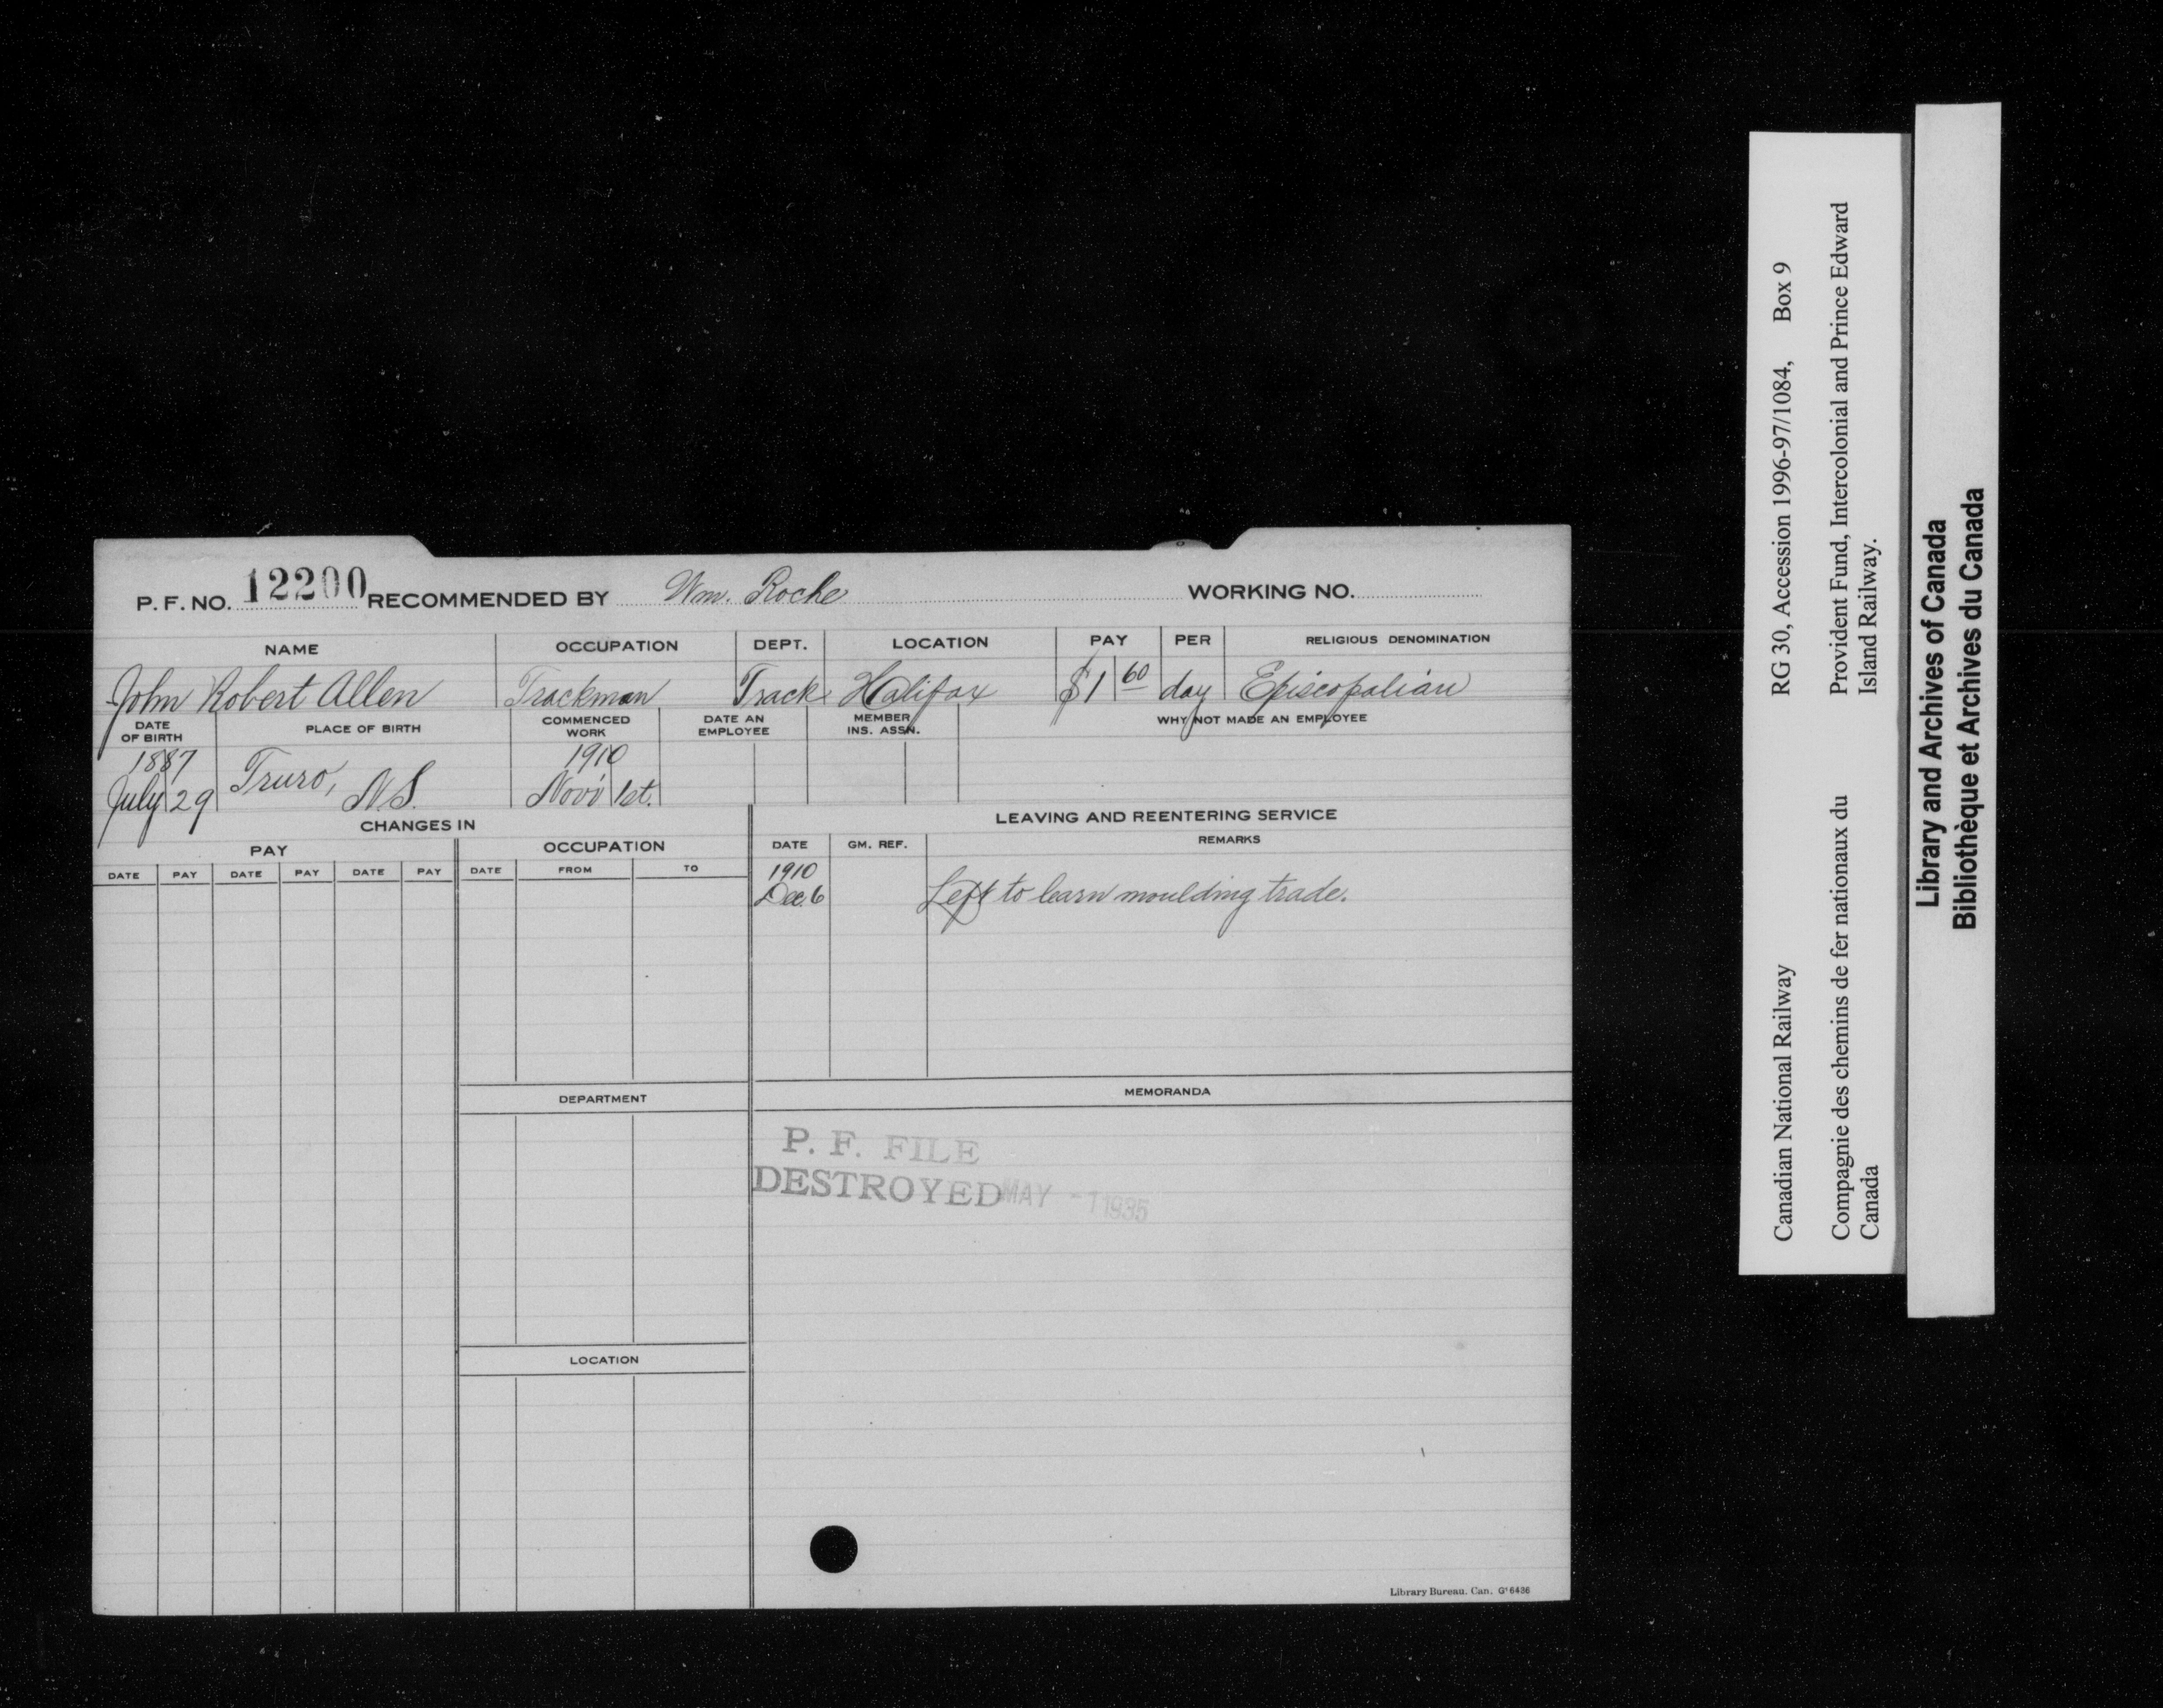 P. F. NO. 12200 RECOMMENDED BY Wm. Roche WORKING NO.
NAME OCCUPATION DEPT. LOCATION PAY PER RELIGIOUS DENOMINATION
John Robert Allen Trackman Track Halifax $1 60 day Episcopalian
DATE OF BIRTH PLACE OF BIRTH COMMENCED WORK DATE AN EMPLOYEE MEMBER INS. ASSN. WHY NOT MADE AN EMPLOYEE
1887 1910
July 29 Truro, N.S. Nov 1st.
CHANGES IN LEAVING AND REENTERING SERVICE
PAY OCCUPATION DATE GM. REF. REMARKS
DATE PAY DATE PAY DATE PAY DATE FROM TO
1910
Dec. 6 Left to learn moulding trade.
DEPARTMENT MEMORANDA
P. F. FILE
DESTROYED MAY -1 1935
LOCATION
Library Bureau. Can. G16486
Canadian National Railway RG 30, Accession 1996-97/1084, Box 9
Compagnie des chemins de fer nationaux du Canada
Provident Fund, Intercolonial and Prince Edward Island Railway.
Library and Archives of Canada
Bibliothèque et Archives du Canada